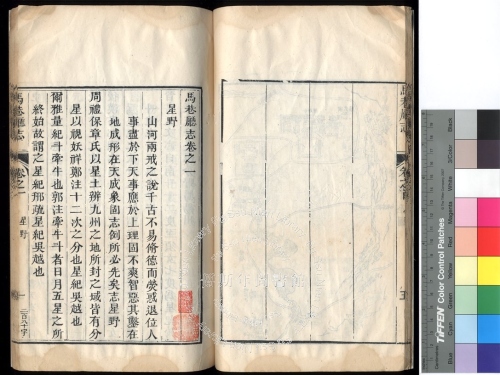 馬巷廳志卷之一
星野
山河兩戒之說千古不易脩德而熒惑退位人
事盡於下天事應於上理固不爽智惡其鑿在
地成形在天成象固志倒所必先矣志星野
周禮保章氏以星土辨九州之地所封之域皆有分
星以視妖祥鄭注十二次之分也星紀吳越也
爾雅星紀斗牽牛也郭注牽牛斗者日月五星之所
終始故謂之星紀邢疏星紀吳越也
馬巷廳志
卷之一
星野
一
馬巷廳志
五
TIFFEN Color Control Patches
Blue
Cyan
Green
Yellow
Red
Magenta
White
3/Color
Black